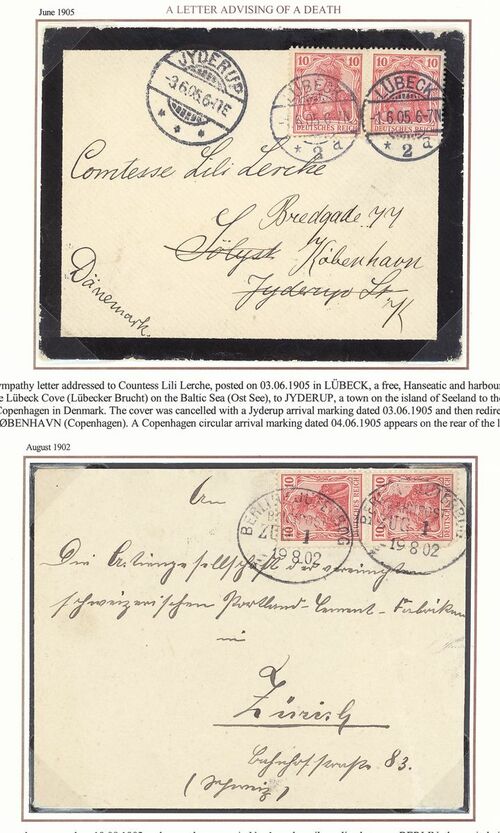 June 1905
A LETTER ADVISING OF A DEATH
JYDERUP
-3.6.05.6-7E
10 10
DEUTSCHES REICH DEUTSCHES REICH
LÜBECK LÜBECK
05. -7N -1.6.05.6-7N
* 2 a * 2 a
Comtesse Lili Lerche
Bredgade 77
Sölyst København
Jyderup St. K
Dänemark.
ympathy letter addressed to Countess Lili Lerche, posted on 03.06.1905 in LÜBECK, a free, Hanseatic and harbou
e Lübeck Cove (Lübecker Brucht) on the Baltic Sea (Ost See), to JYDERUP, a town on the island of Seeland to the
Copenhagen in Denmark. The cover was cancelled with a Jyderup arrival marking dated 03.06.1905 and then redire
ØBENHAVN (Copenhagen). A Copenhagen circular arrival marking dated 04.06.1905 appears on the rear of the l
August 1902
10 10
DEUTSCHES REICH DEUTSCHES REICH
BERLIN
ZUG 1 ZUG 1
19 8.02 19 8.02
An
Die Actiengesellschaft der vereinigten
schweizerischen Portland-Cement-Fabriken
in
Zürich
Bahnhofstraße 83.
(Schweiz)